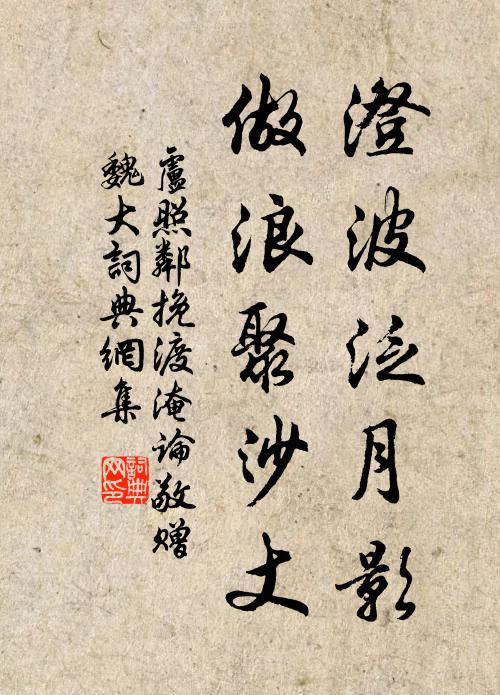 澄波泛月影
做浪聚沙丈
盧照鄰挽渡淹論敬贈
魏大詞典網集
詞典
网印